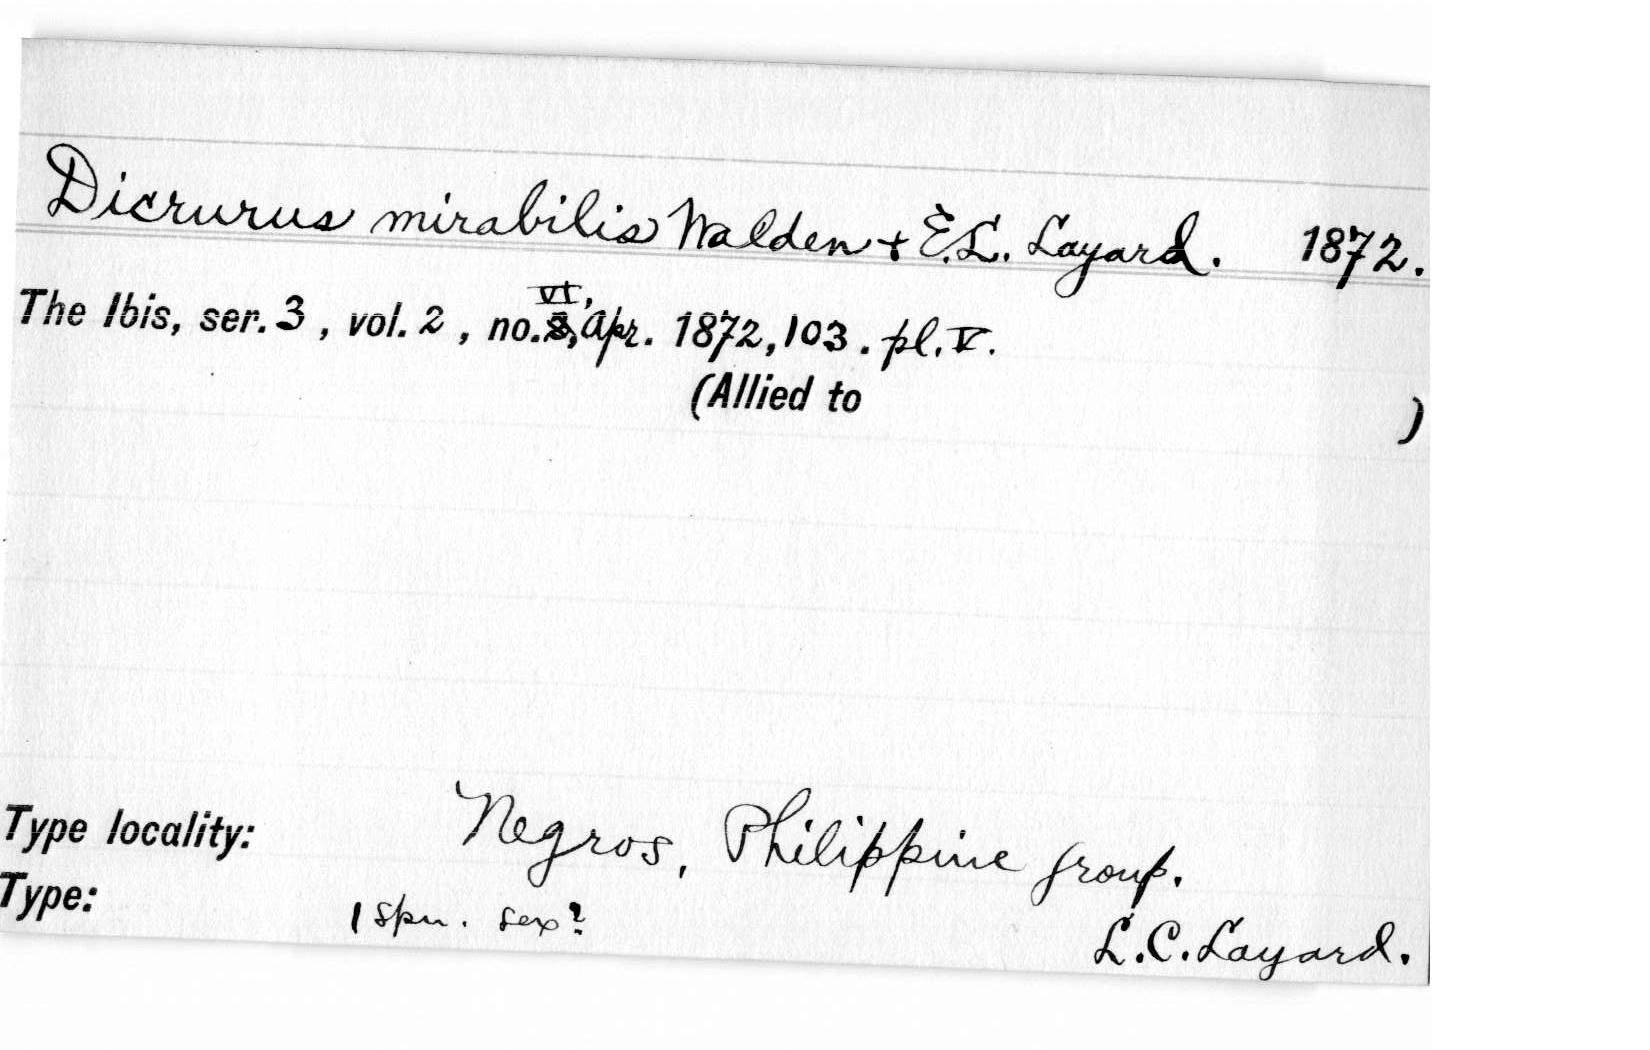 Dicrurus mirabilis Walden + E.L. Layard. 1872.
The Ibis, ser. 3, vol. 2, no. VI, Apr. 1872, 103. pl. V.
(Allied to )
Type locality: Negros, Philippine group.
Type: 1 spn. sex?
L.C. Layard.